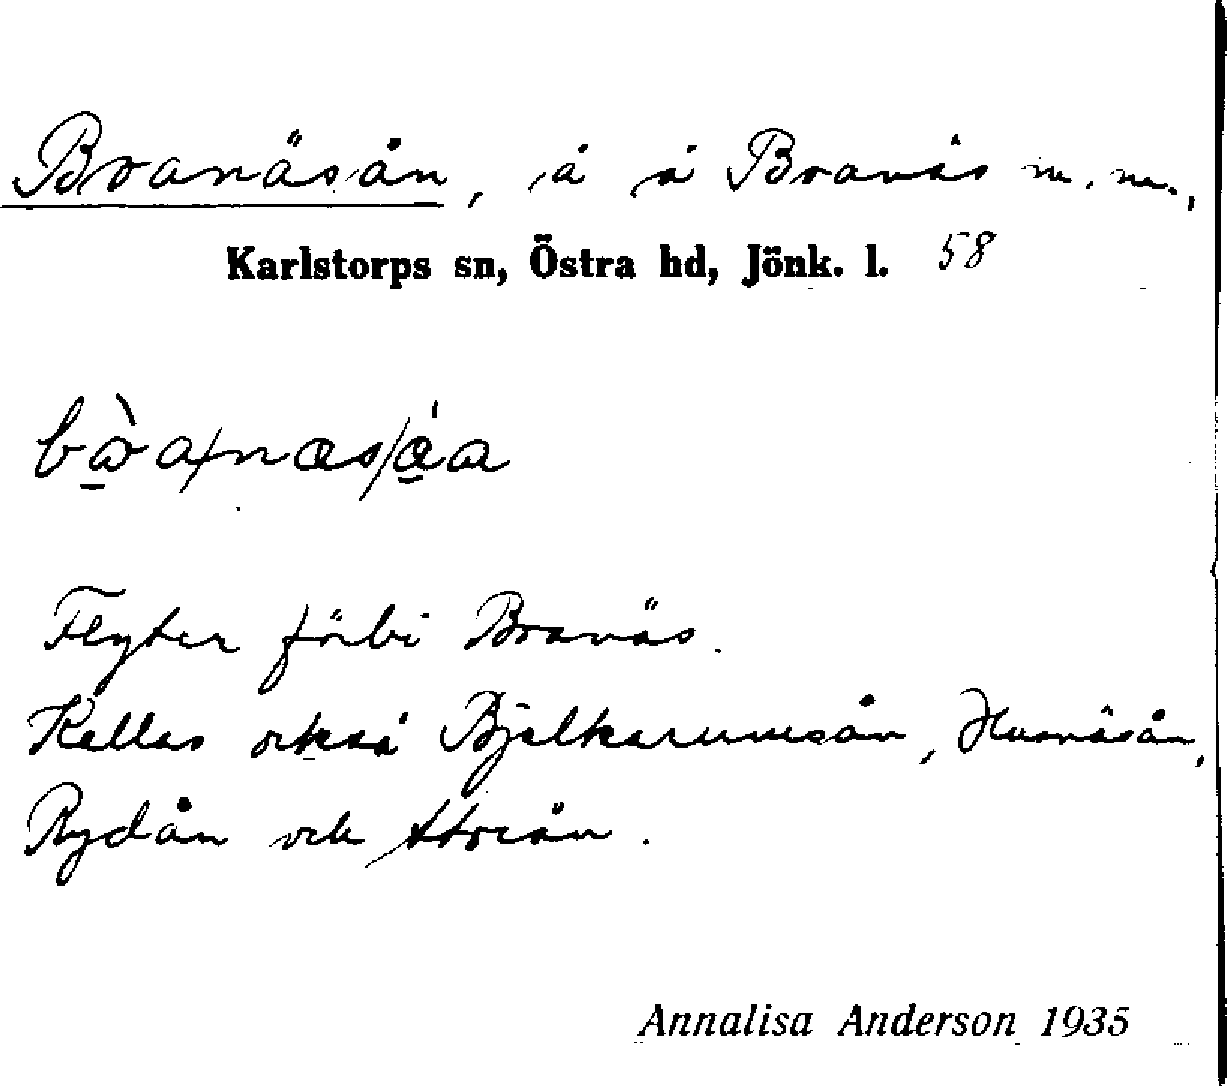 Branäsån, å å Branäs m. m.,
Karlstorps sn, Östra hd, Jönk. l. 58
Flyter förbi Branäs.
Kallas också Bjälkarumsån, Husnäsån,
Rydån och Storån.
Annalisa Anderson 1935